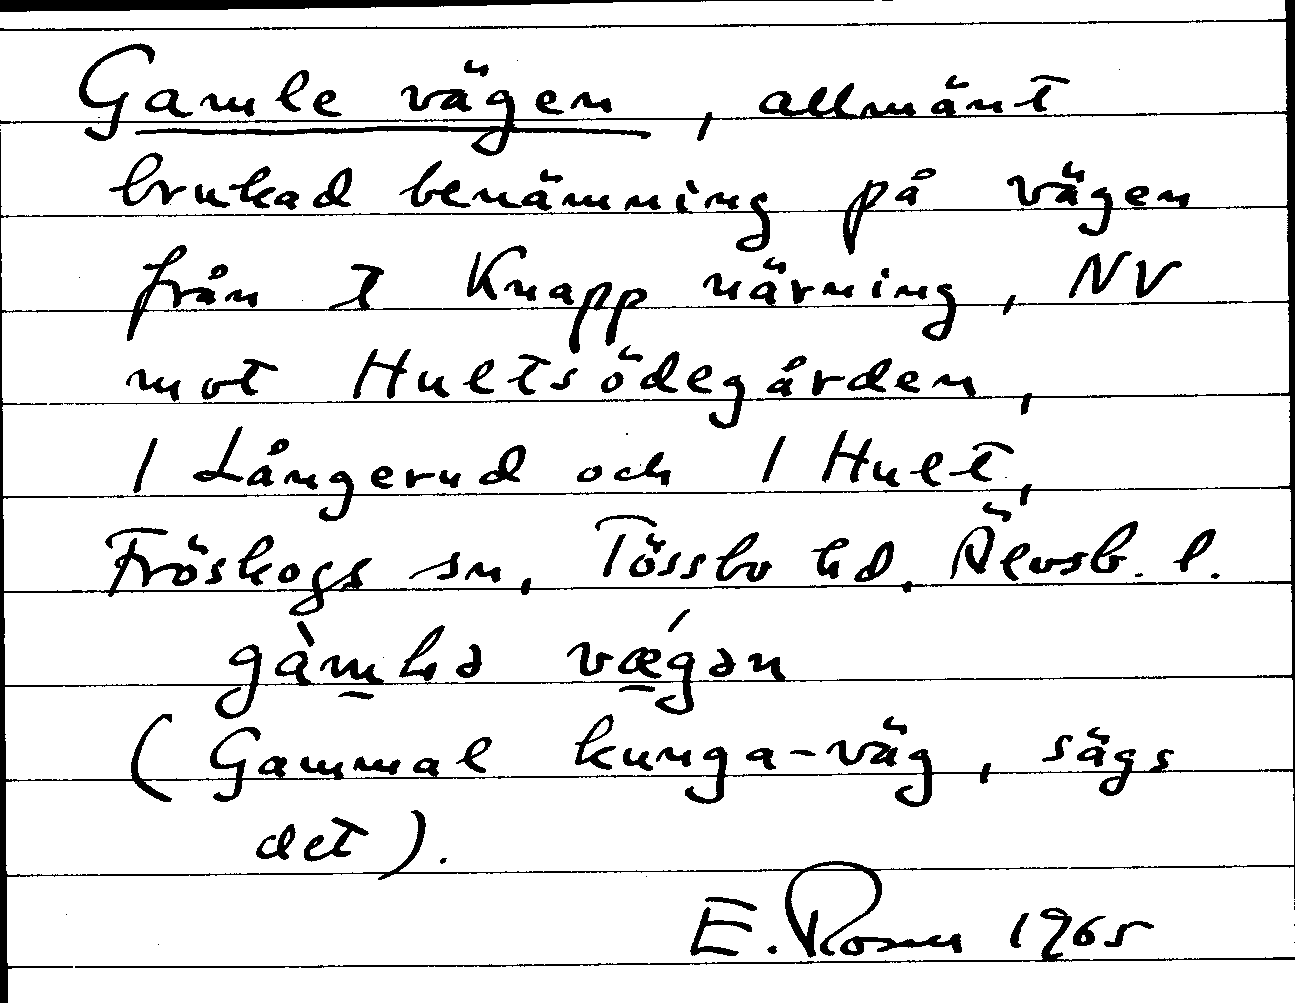 Gamle vägen, allmänt
brukad benämning på vägen
från t Knapp närning, NV
mot Hultsödegården,
1 Långerud och 1 Hult,
Fröskogs sn, Tössbo hd. Älvsb. l.
gàm̲lə vǽ̲gən
(Gammal kunga-väg, sägs
det).
E. Rosner 1965